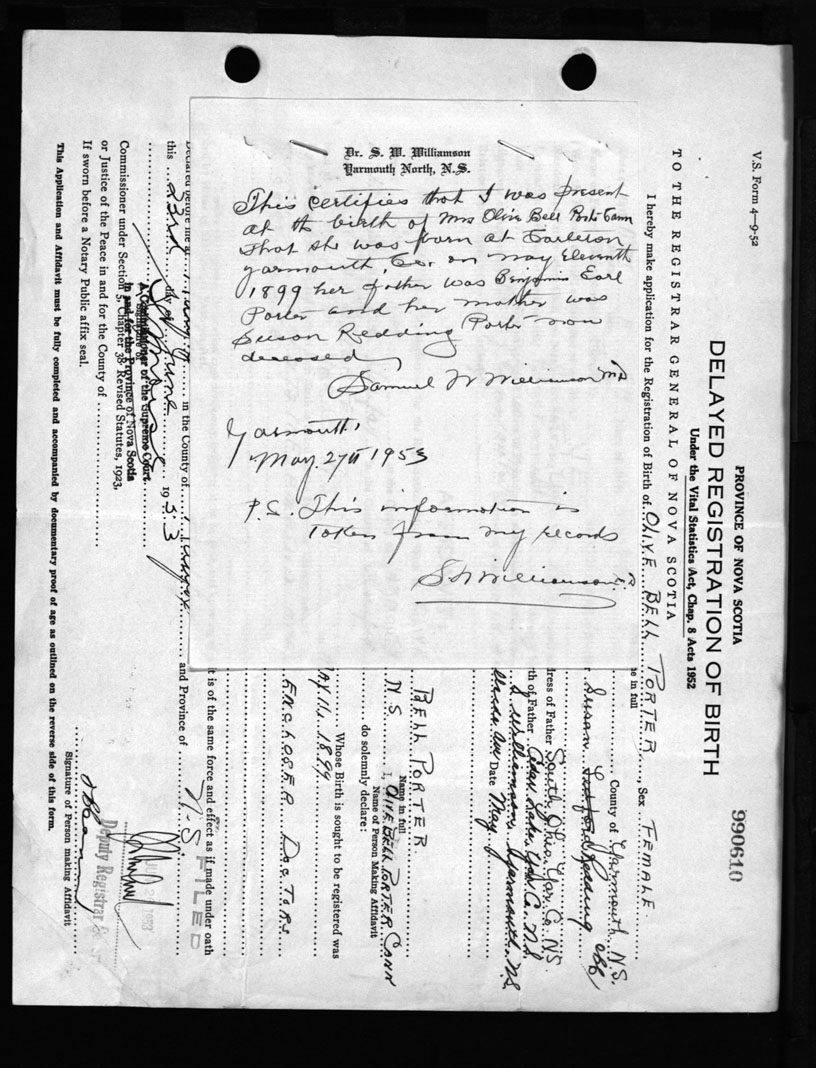 Dr. S. W. Williamson
Yarmouth North, N.S.
This certifies that I was present
at th birth of Mrs Olive Bell Porter Cann
that she was born at Carleton
Yarmouth, Co. on May Eleventh
1899 her father was Benjamin Earl
Porter and her mother was
Susan Redding Porter now
deceased
Samuel W Williamson MD
Yarmouth,
May. 27th 1953
P.S. This information is
taken from my records
S W Williamson
V.S. Form 4—9-52
990610
PROVINCE OF NOVA SCOTIA
DELAYED REGISTRATION OF BIRTH
Under the Vital Statistics Act, Chap. 8 Acts 1952
TO THE REGISTRAR GENERAL OF NOVA SCOTIA
I hereby make application for the Registration of Birth of OLIVE BELL PORTER, Sex FEMALE
e in full
County of Yarmouth, N.S.
Susan
dress of Father South Ohio, Yar. Co. NS.
th of Father
Williamson, Yarmouth, N.S.
Date May
BELL PORTER.
Name in full
N.S. I, OLIVE BELL PORTER CANN
Name of Person Making Affidavit
do solemnly declare:
Whose Birth is sought to be registered was
MAY. 11. 1899
ENCLOSED DOCTORS
t is of the same force and effect as if made under oath
FILED
Declared before me at in the County of and Province of N.S.
this 23rd day of June 1953
Signature of
A Commissioner of the Supreme Court
in and for the Province of Nova Scotia
Commissioner under Section 5, Chapter 38 Revised Statutes, 1923,
or Justice of the Peace in and for the County of
If sworn before a Notary Public affix seal.
Signature of Person making Affidavit
Deputy Registrar
This Application and Affidavit must be fully completed and accompanied by documentary proof of age as outlined on the reverse side of this form.